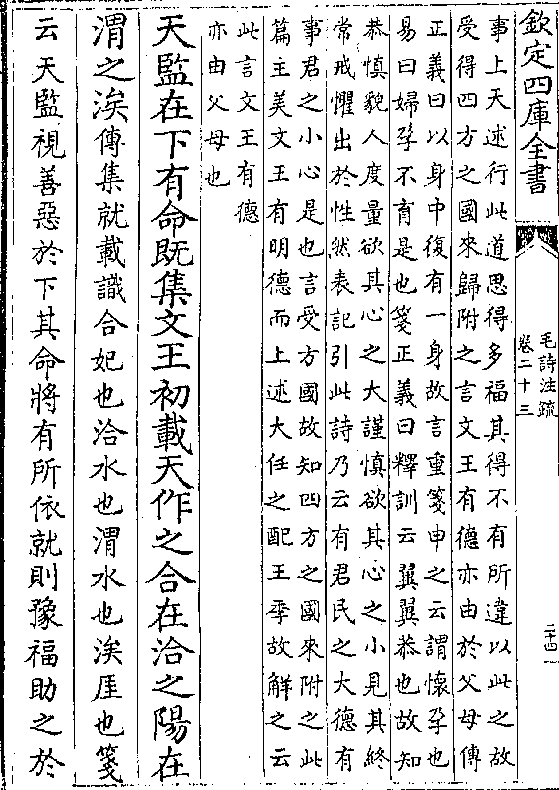 欽定四庫全書
毛詩注疏
卷二十三
二十四
事上天述行此道思得多福其得不有所違以此之故
受得四方之國來歸附之言文王有德亦由於父母傳
正義曰以身中復有一身故言重箋申之云謂懷孕也
易曰婦孕不育是也箋正義曰釋訓云翼翼恭也故知
恭慎貌人度量欲其心之大謹慎欲其心之小見其終
常戒懼出於性然表記引此詩乃云有君民之大德有
事君之小心是也言受方國故知四方之國來附之此
篇主美文王有明德而上述大任之配王季故解之云
此言文王有德
亦由父母也
天監在下有命既集文王初載天作之合在洽之陽在
渭之涘傳集就載識合妃也洽水也渭水也涘厓也箋
云天監視善惡於下其命將有所依就則豫福助之於